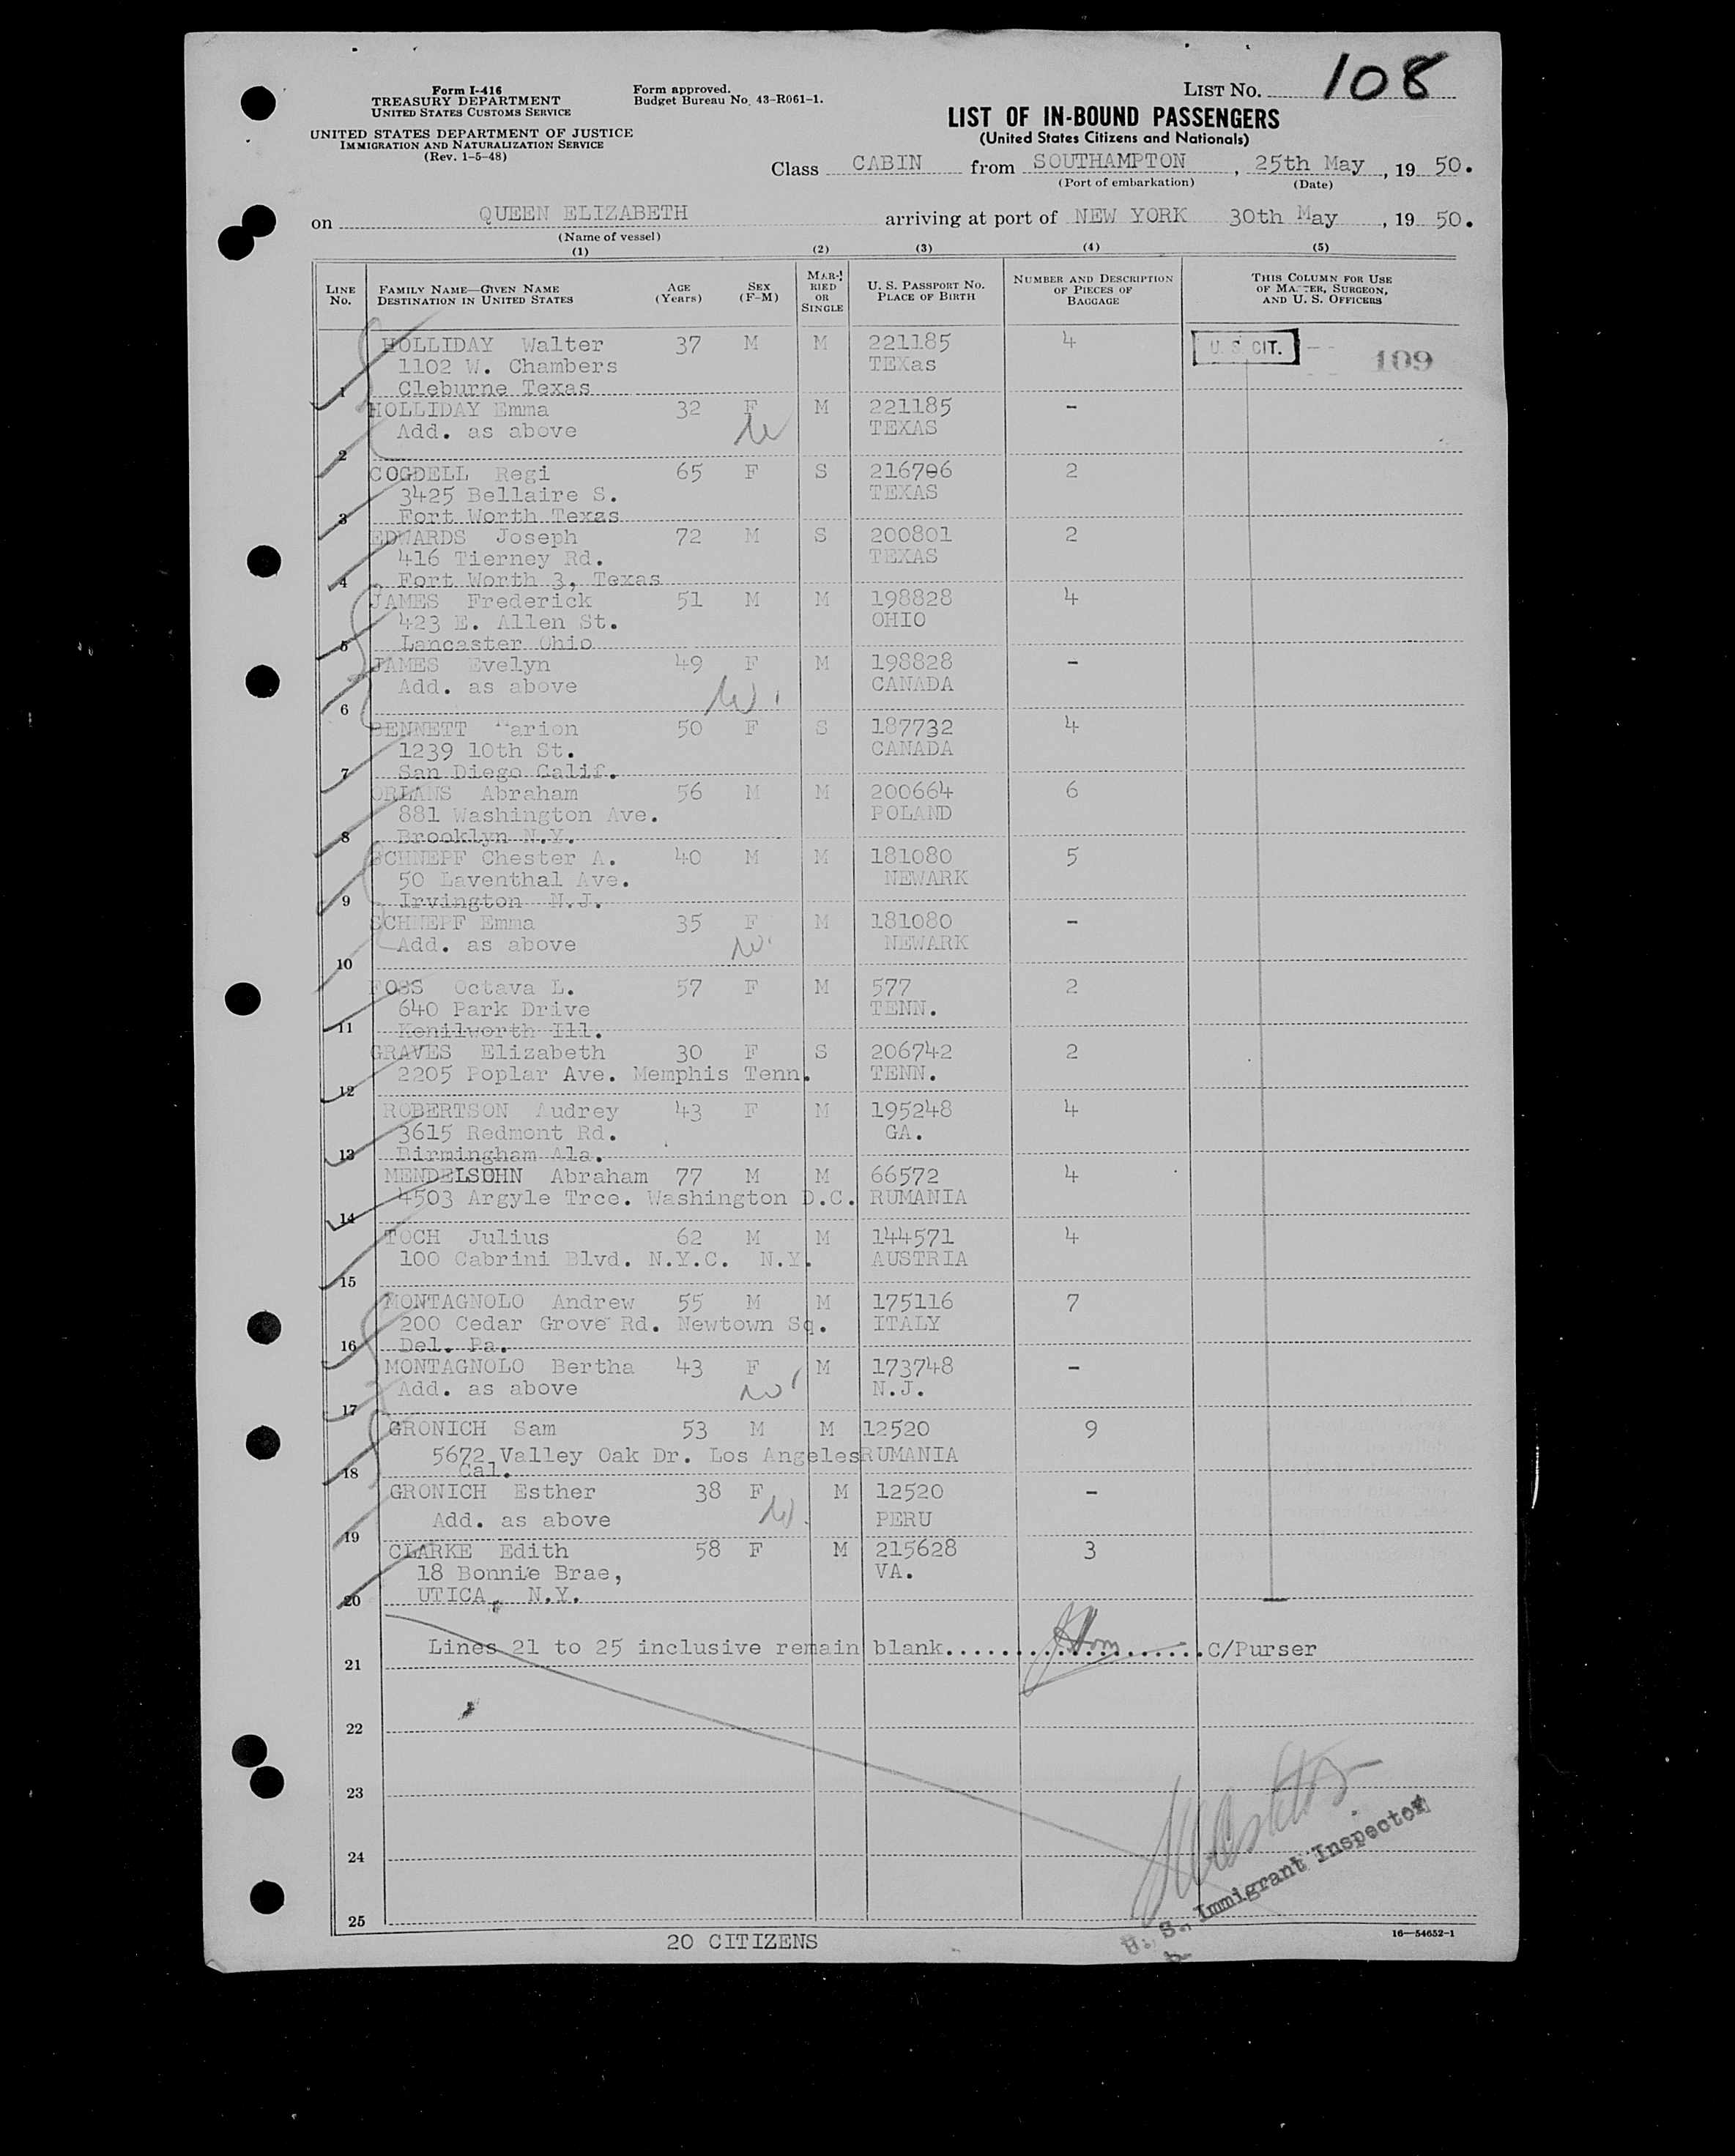 Form I-416
TREASURY DEPARTMENT
UNITED STATES CUSTOMS SERVICE
UNITED STATES DEPARTMENT OF JUSTICE
IMMIGRATION AND NATURALIZATION SERVICE
(Rev. 1-5-48)
Form approved.
Budget Bureau No. 43-R061-1.
LIST NO. 108
LIST OF IN-BOUND PASSENGERS
(United States Citizens and Nationals)
Class CABIN from SOUTHAMPTON, 25th May, 19 50.
(Port of embarkation) (Date)
on QUEEN ELIZABETH arriving at port of NEW YORK 30th May, 19 50.
(Name of vessel)
(1) (2) (3) (4) (5)
LINE No. FAMILY NAME—GIVEN NAME DESTINATION IN UNITED STATES AGE (Years) SEX (F-M) MARRIED OR SINGLE U. S. PASSPORT NO. PLACE OF BIRTH NUMBER AND DESCRIPTION OF PIECES OF BAGGAGE THIS COLUMN FOR USE OF MASTER, SURGEON, AND U. S. OFFICERS
HOLLIDAY Walter 37 M M 221185 4 U. S. CIT. 109
1102 W. Chambers TEXas
1 Cleburne Texas
HOLLIDAY Emma 32 F M 221185 -
Add. as above TEXAS
2
COGDELL Regi 65 F S 216706 2
3425 Bellaire S. TEXAS
3 Fort Worth Texas
EDWARDS Joseph 72 M S 200801 2
416 Tierney Rd. TEXAS
4 Fort Worth 3, Texas
JAMES Frederick 51 M M 198828 4
423 E. Allen St. OHIO
5 Lancaster Ohio
JAMES Evelyn 49 F M 198828 -
Add. as above CANADA
6
BENNETT Marion 50 F S 187732 4
1239 10th St. CANADA
7 San Diego Calif.
ORLANS Abraham 56 M M 200664 6
881 Washington Ave. POLAND
8 Brooklyn N.Y.
SCHNEPF Chester A. 40 M M 181080 5
50 Laventhal Ave. NEWARK
9 Irvington N.J.
SCHNEPF Emma 35 F M 181080 -
Add. as above NEWARK
10
FOSS Octava L. 57 F M 577 2
640 Park Drive TENN.
11 Kenilworth Ill.
GRAVES Elizabeth 30 F S 206742 2
2205 Poplar Ave. Memphis Tenn. TENN.
12
ROBERTSON Audrey 43 F M 195248 4
3615 Redmont Rd. GA.
13 Birmingham Ala.
MENDELSOHN Abraham 77 M M 66572 4
4503 Argyle Trce. Washington D.C. RUMANIA
14
TOCH Julius 62 M M 144571 4
100 Cabrini Blvd. N.Y.C. N.Y. AUSTRIA
15
MONTAGNOLO Andrew 55 M M 175116 7
200 Cedar Grove Rd. Newtown Sq. ITALY
16 Del. Pa.
MONTAGNOLO Bertha 43 F M 173748 -
Add. as above N.J.
17
GRONICH Sam 53 M M 12520 9
5672 Valley Oak Dr. Los Angeles RUMANIA
18 Cal.
GRONICH Esther 38 F M 12520 -
Add. as above PERU
19
CLARKE Edith 58 F M 215628 3
18 Bonnie Brae, VA.
20 UTICA, N.Y.
Lines 21 to 25 inclusive remain blank................... C/Purser
21
22
23
24
25
U. S. Immigrant Inspector
20 CITIZENS
16—54652-1